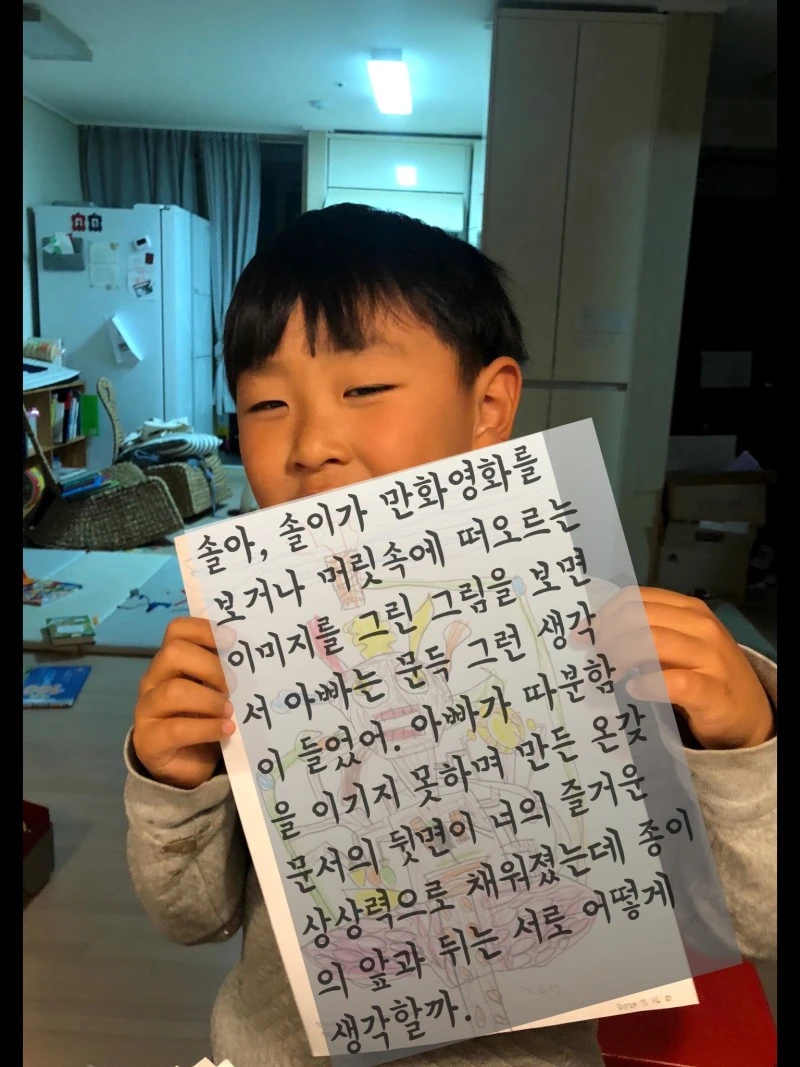 솔아, 솔이가 만화영화를
보거나 머릿속에 떠오르는
이미지를 그린 그림을 보면
서 아빠는 문득 그런 생각
이 들었어. 아빠가 따분함
을 이기지 못하며 만든 온갖
문서의 뒷면이 너의 즐거운
상상력으로 채워졌는데 종이
의 앞과 뒤는 서로 어떻게
생각할까.